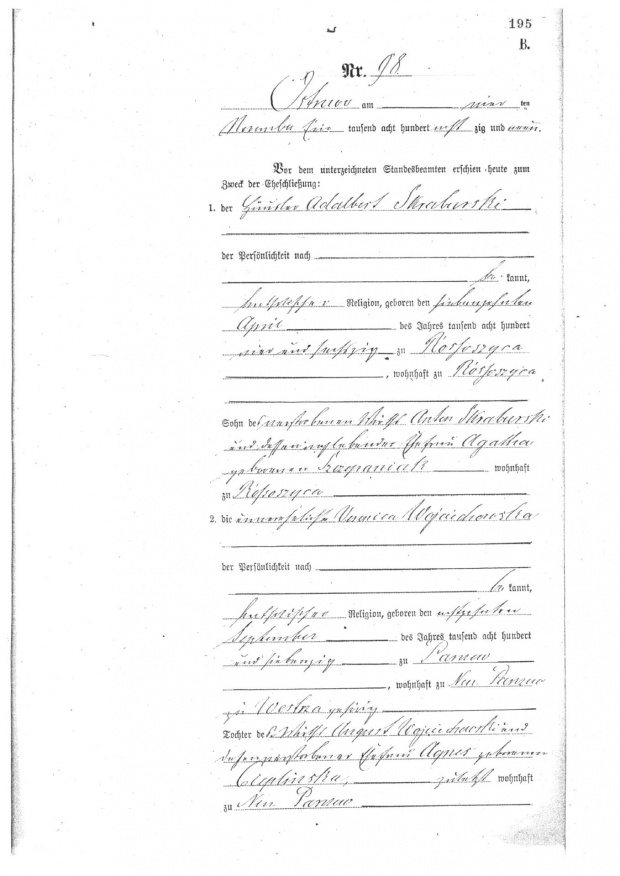 195
B.
Nr. 98
Ostrow am vier ten
November Ein tausend acht hundert acht zig und neun.
Vor dem unterzeichneten Standesbeamten erschien heute zum
Zweck der Eheschließung:
1. der Häusler Adalbert Skraburski
der Persönlichkeit nach
be kannt,
katholischer Religion, geboren den siebenzehnten
April des Jahres tausend acht hundert
vier und sechszig zu Rossoszyca
, wohnhaft zu Rossoszyca
Sohn des verstorbenen Wirths Anton Skraburski
und dessen noch lebender Ehefrau Agatha
geborenen Szczepaniak wohnhaft
zu Rossoszyca
2. die unverehelichte Veronica Wojciechowska
der Persönlichkeit nach
be kannt,
katholischer Religion, geboren den achtzehnten
September des Jahres tausend acht hundert
und siebenzig zu
, wohnhaft zu Neu
zu Westrza gehörig
Tochter des Wirths August Wojciechowski und
dessen verstorbener Ehefrau Agnes geborenen
zuletzt wohnhaft
zu Neu